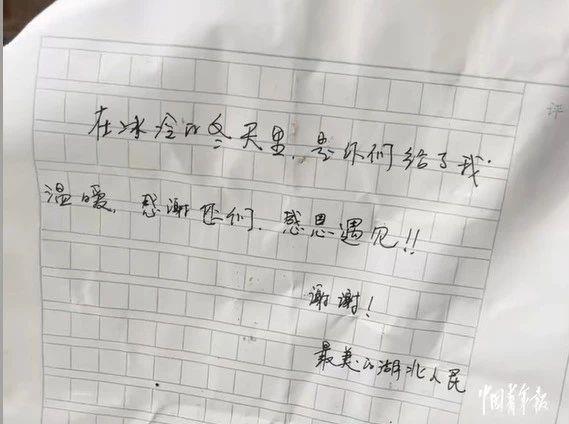 在冰冷的冬天里，是你们给了我
温暖，感谢您们，感恩遇见!!
谢谢!
最美的湖北人民
中国青年报
评